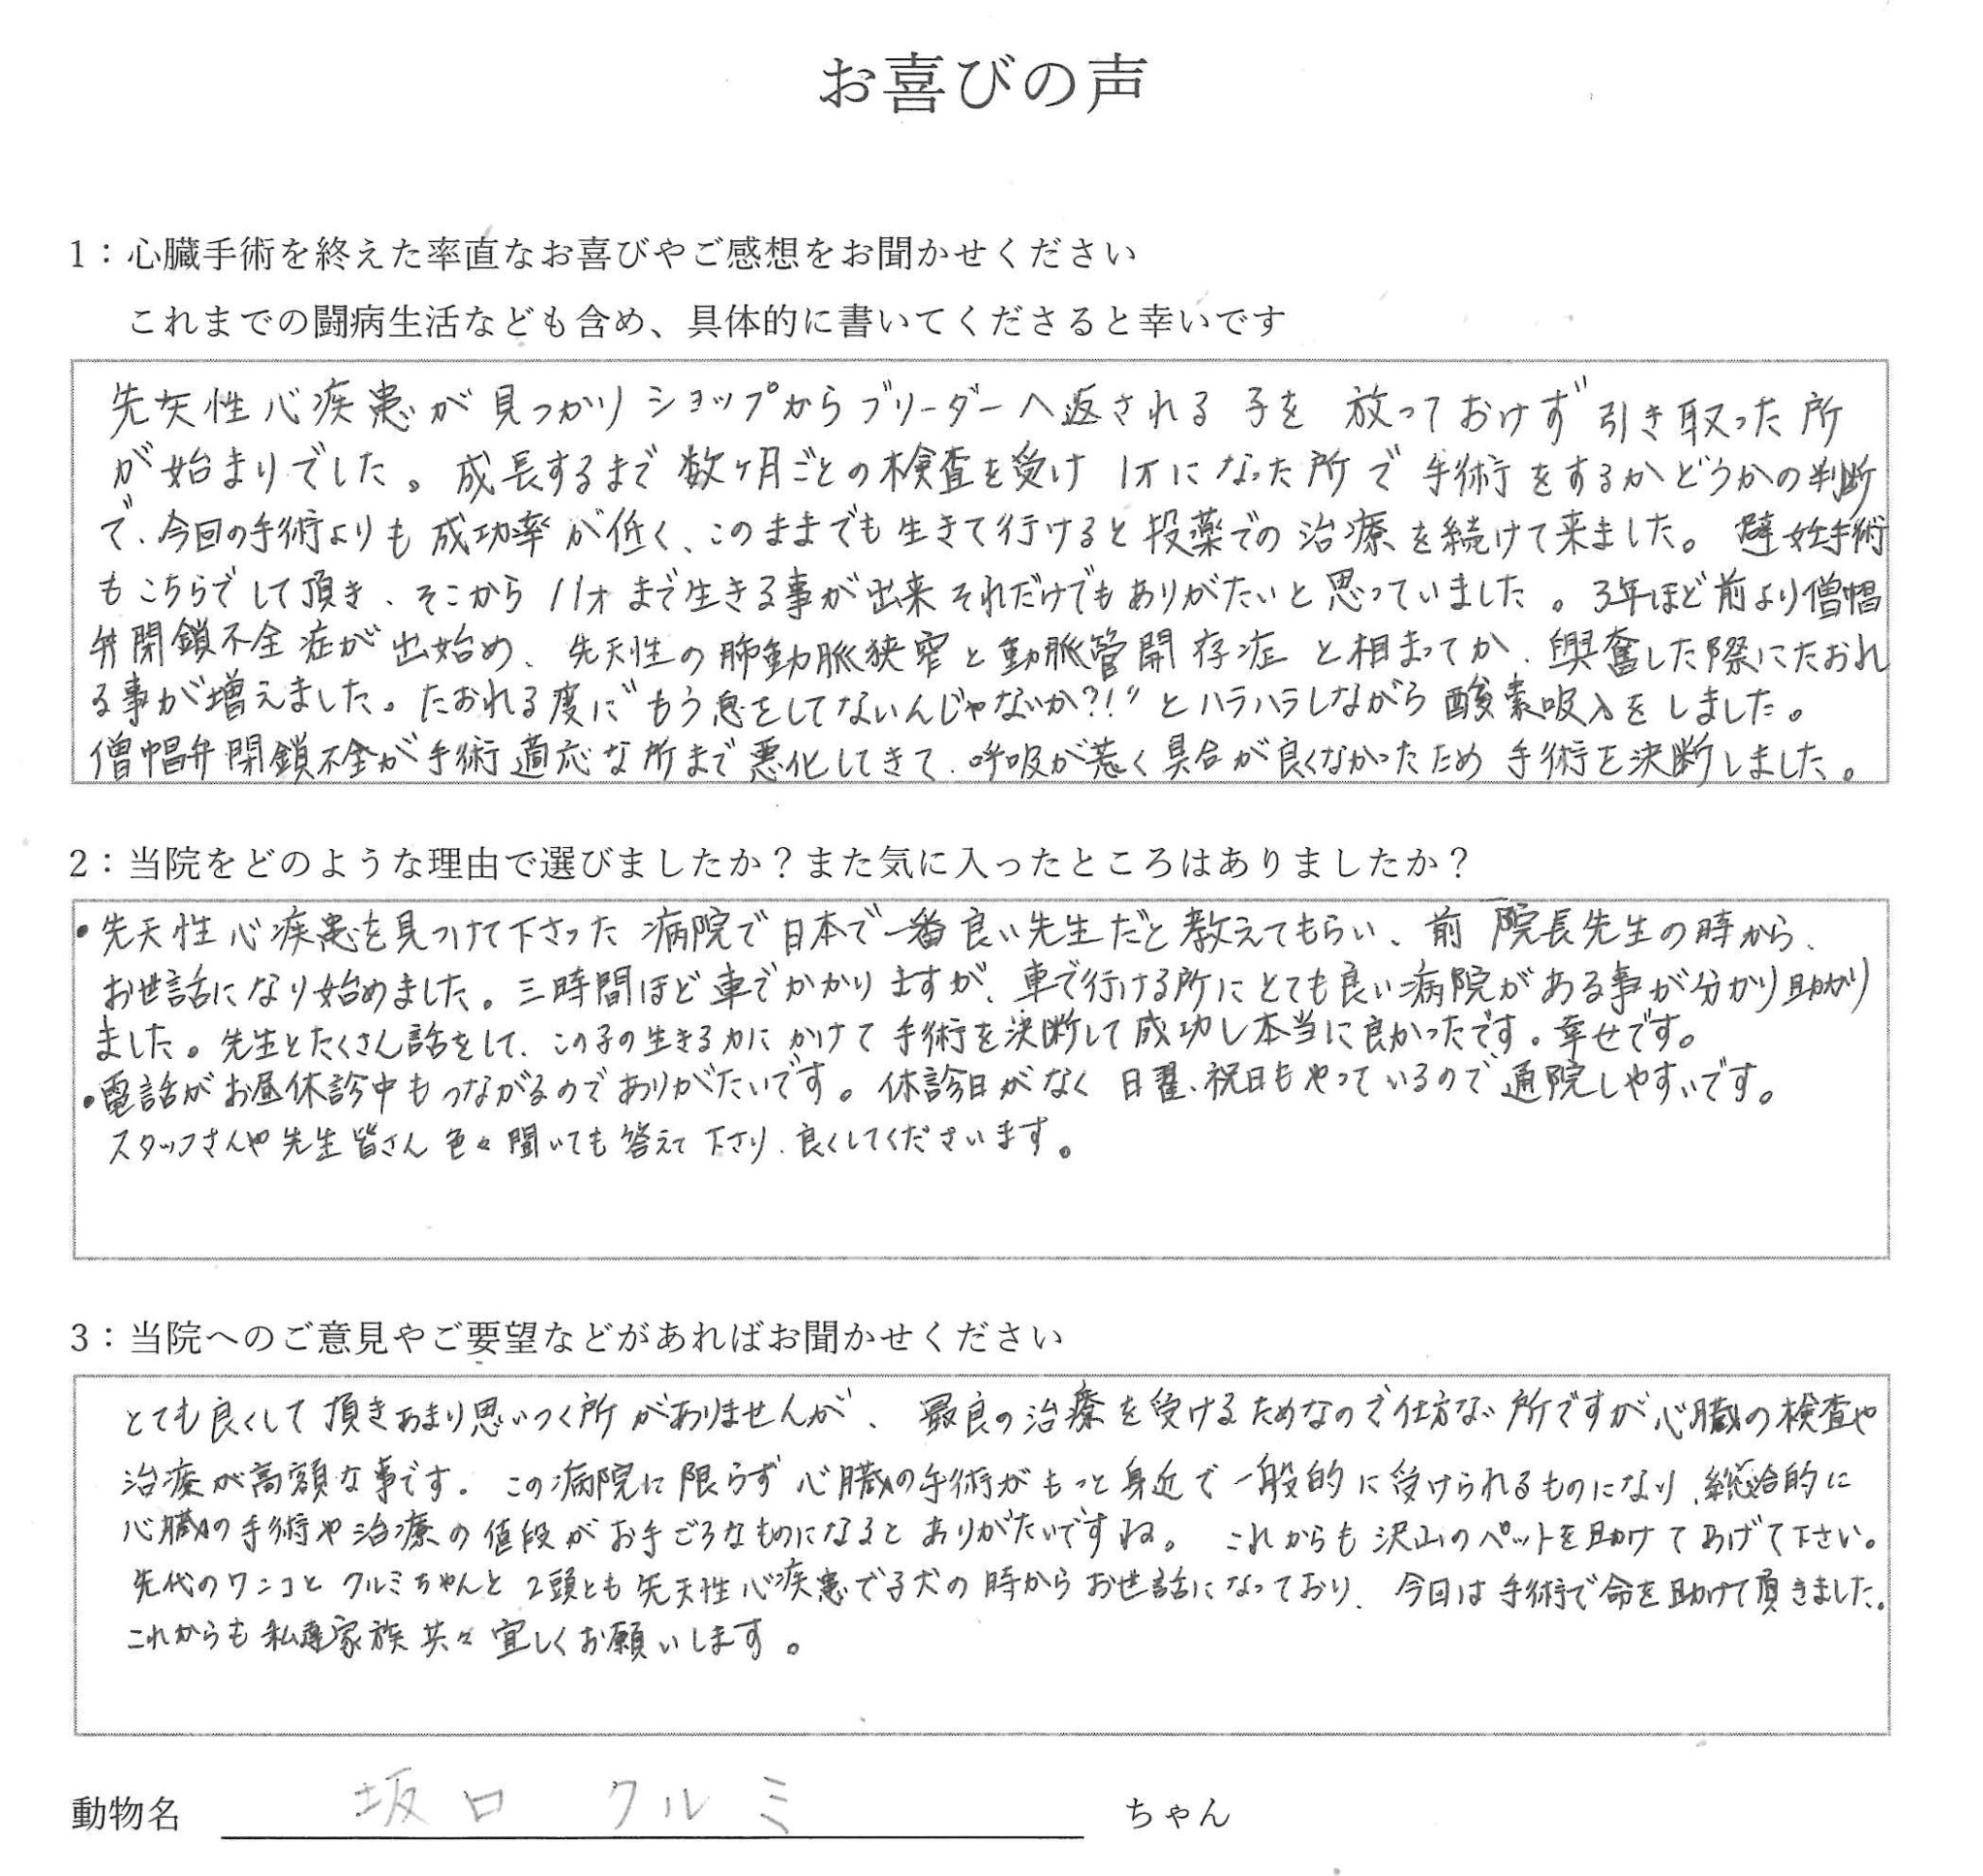 お喜びの声
1：心臓手術を終えた率直なお喜びやご感想をお聞かせください
これまでの闘病生活なども含め、具体的に書いてくださると幸いです
先天性心疾患が見つかりショップからブリーダーへ返される子を 放っておけず引き取った所
が始まりでした。成長するまで数ヶ月ごとの検査を受け 1才になった所で手術をするかどうかの判断
で、今回の手術よりも成功率が低く、このままでも生きて行けると投薬での治療を続けて来ました。避妊手術
もこちらでして頂き、そこから11才まで生きる事が出来それだけでもありがたいと思っていました。3年ほど前より僧帽
弁閉鎖不全症が出始め、先天性の肺動脈狭窄と動脈管開存症と相まってか、興奮した際にたおれ
る事が増えました。たおれる度に"もう息をしてないんじゃないか?!"とハラハラしながら酸素吸入をしました。
僧帽弁閉鎖不全が手術適応な所まで悪化してきて、呼吸が荒く具合が良くなかったため手術を決断しました。
2：当院をどのような理由で選びましたか？また気に入ったところはありましたか？
・先天性心疾患を見つけて下さった病院で日本で一番良い先生だと教えてもらい、前院長先生の時から、
お世話になり始めました。三時間ほど車でかかりますが、車で行ける所にとても良い病院がある事が分かり助かり
ました。先生とたくさん話をして、この子の生きる力にかけて手術を決断して成功し本当に良かったです。幸せです。
・電話がお昼休診中もつながるのでありがたいです。休診日がなく日曜、祝日もやっているので通院しやすいです。
スタッフさんや先生皆さん色々聞いても答えて下さり、良くしてくださいます。
3：当院へのご意見やご要望などがあればお聞かせください
とても良くして頂きあまり思いつく所がありませんが、最良の治療を受けるためなので仕方ない所ですが心臓の検査や
治療が高額な事です。この病院に限らず心臓の手術がもっと身近で一般的に受けられるものになり、総合的に
心臓の手術や治療の値段がお手ごろなものになるとありがたいですね。これからも沢山のペットを助けてあげて下さい。
先代のワンコとクルミちゃんと2頭とも先天性心疾患で子犬の時からお世話になっており、今回は手術で命を助けて頂きました。
これからも私達家族共々宜しくお願いします。
動物名 坂口 クルミ ちゃん